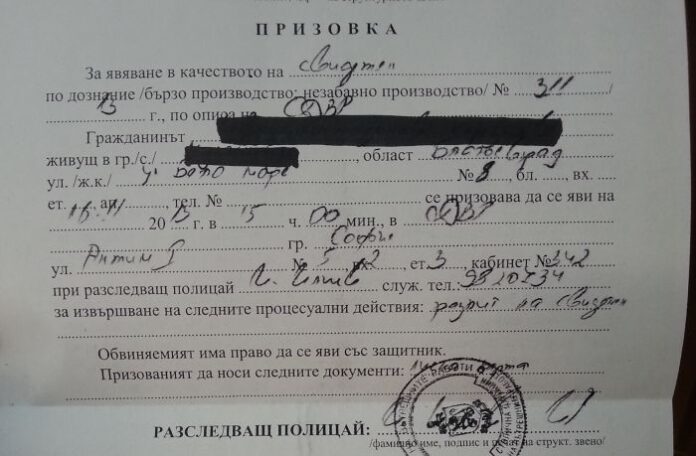 ПРИЗОВКА
За явяване в качеството на свидетел
по дознание /бързо производство; незабавно производство/ № 311 /
13 г., по описа на СДВР
Гражданинът
живущ в гр./с./ , област Благоевград
ул. /ж.к./ № 8, бл. , вх.
ет. , ап. , тел. № се призовава да се яви на
18.11 2013 г. в 15 ч. 00 мин., в СДВР
гр. София
ул. Антим I № 5, вх. 2, ет. 3, кабинет № 342
при разследващ полицай служ. тел.:
за извършване на следните процесуални действия: разпит на свидетел
Обвиняемият има право да се яви със защитник.
Призованият да носи следните документи: лична карта
РАЗСЛЕДВАЩ ПОЛИЦАЙ:
/фамилно име, подпис и печат на структ. звено/